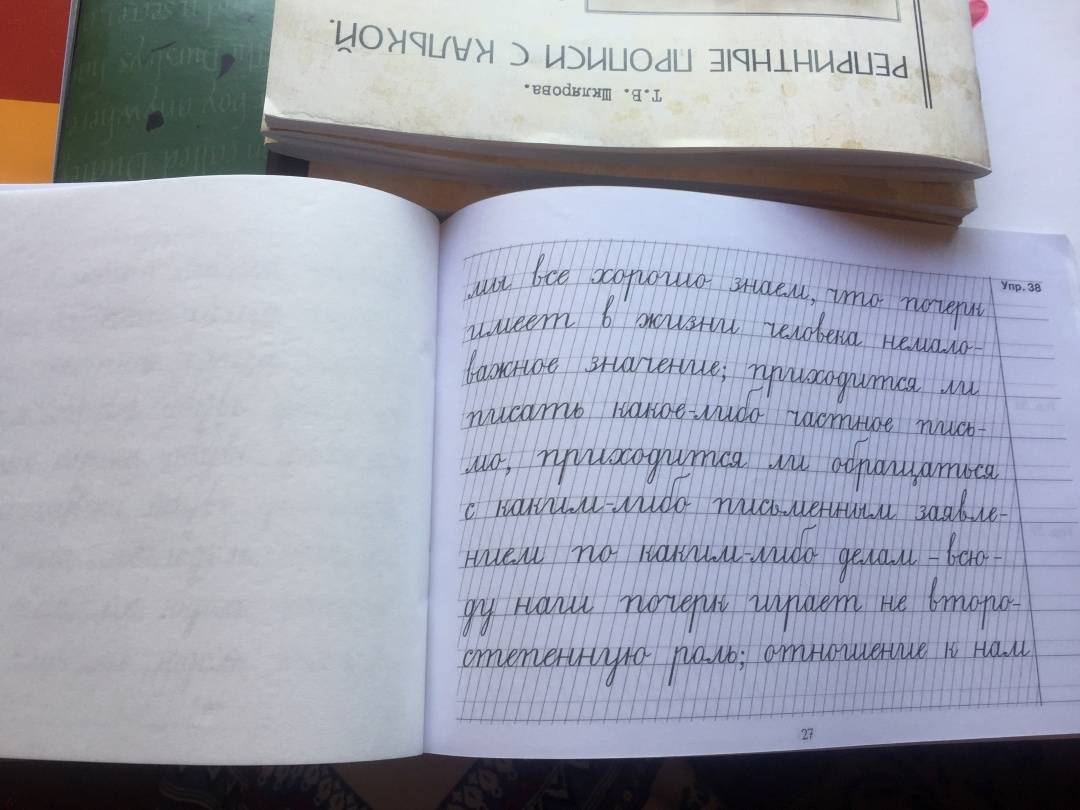 РЕПРИНТНЫЕ ПРОПИСИ С КАЛЬКОЙ.
Т. В. Шклярова.
Упр. 38
мы все хорошо знаем, что почерк
имеет в жизни человека немало-
важное значение; приходится ли
писать какое-либо частное пись-
мо, приходится ли обращаться
с каким-либо письменным заявле-
нием по каким-либо делам – всю-
ду наш почерк играет не второ-
степенную роль; отношение к нам
27